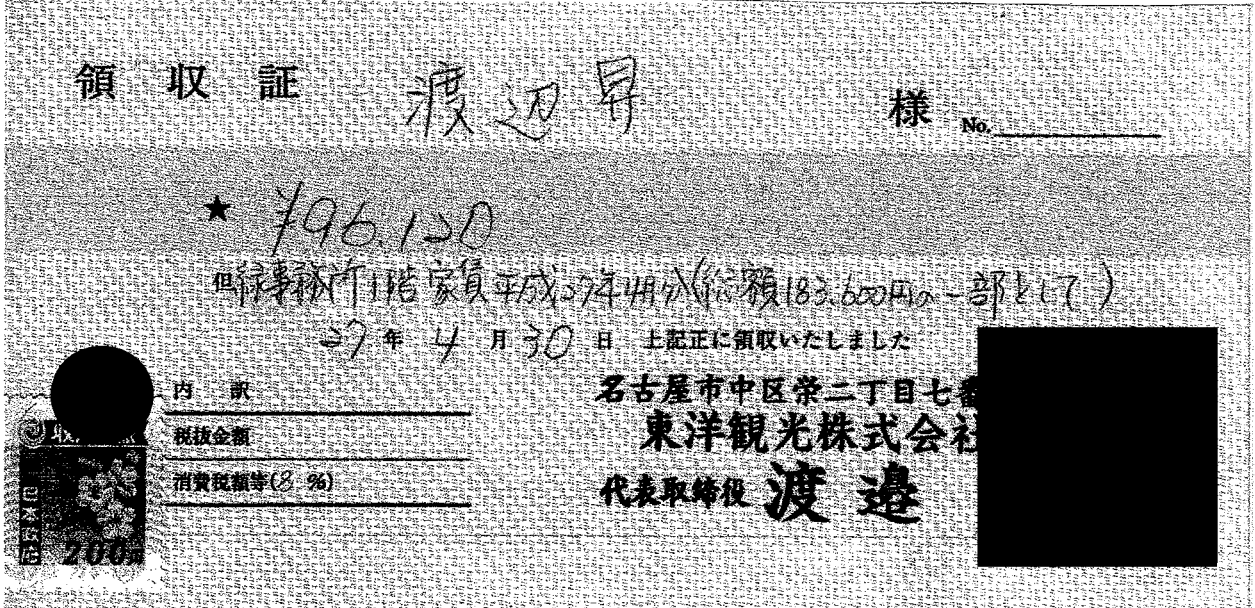 領収証 渡辺昇 様 No.
★ ¥96,120
但 緑事務所1階家賃平成27年4月分(総額183,600円の一部として)
27年4月30日 上記正に領収いたしました
内訳
税抜金額
消費税額等(8%)
名古屋市中区栄二丁目七番
東洋観光株式会社
代表取締役 渡邉
200円